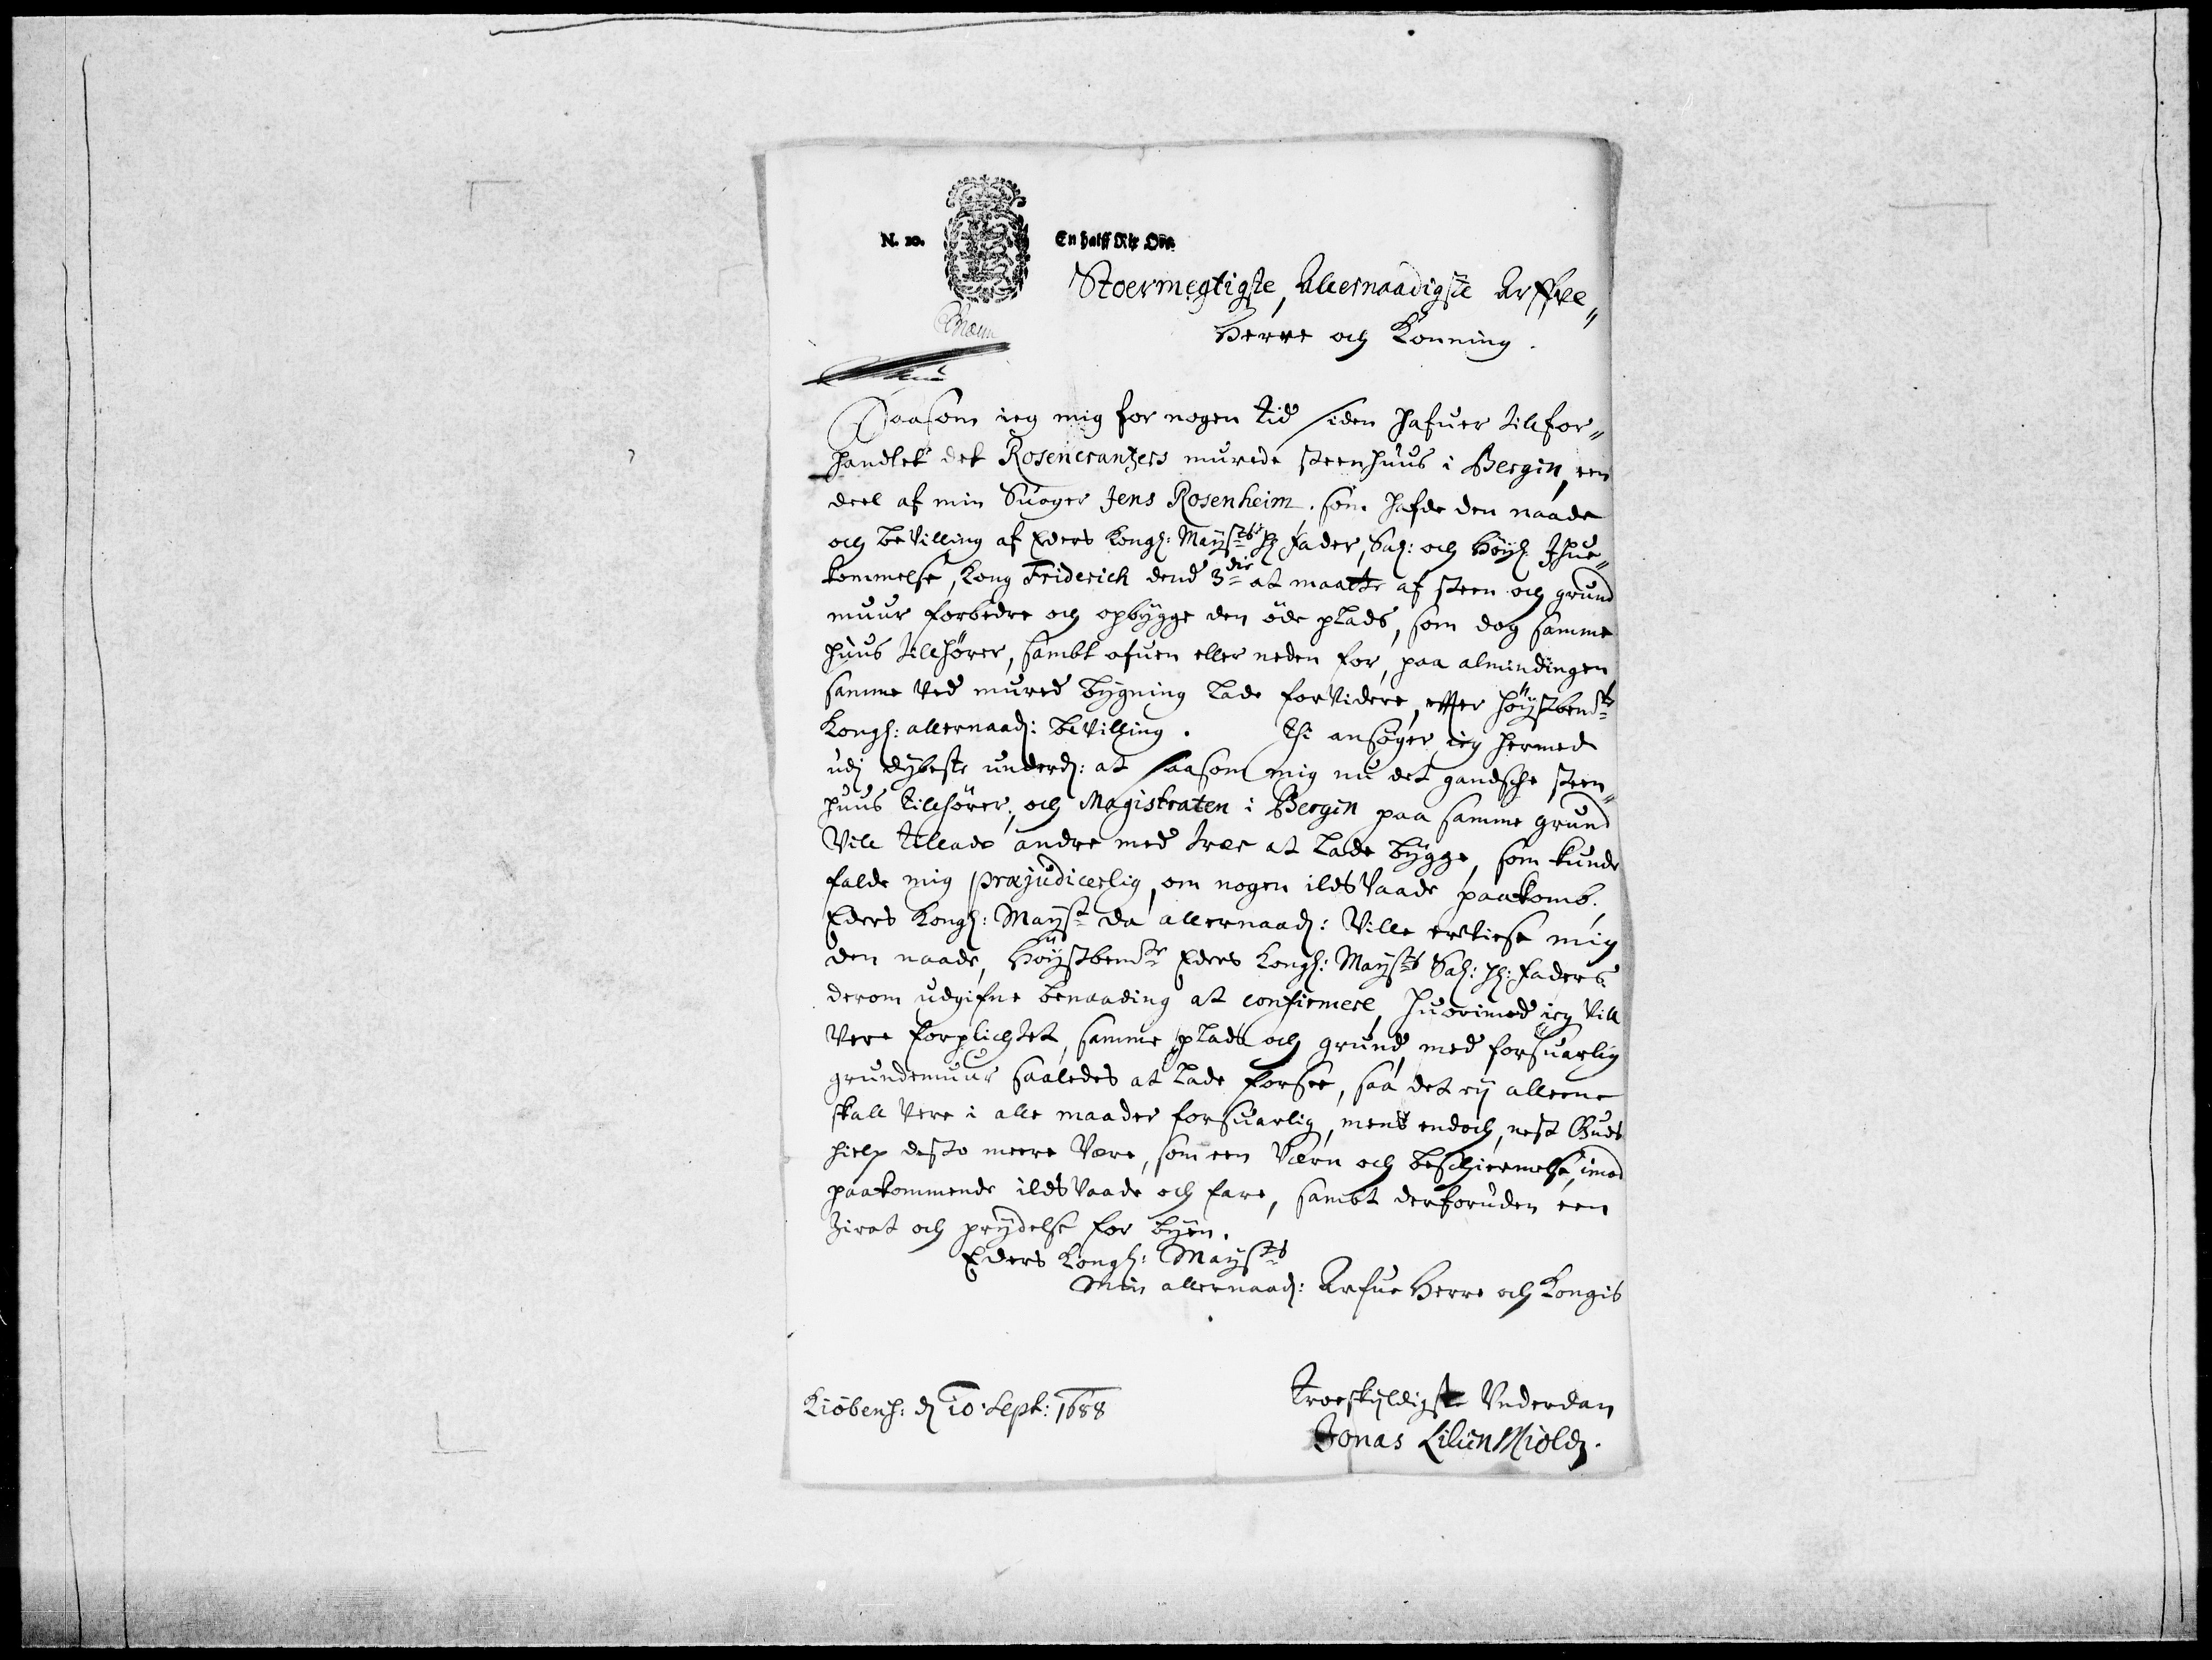 N. 20.
En halff Rix Ort
Stoermegtigste, Allernaadigste Arffve„
Herre och Konning.
Saasom ieg mig for nogen tid siden hafuer tillfor„
handlet det Rosencrantzers murede steenhuus i Bergin, een
deel af min Suoger Jens Rosenheim. som hafde den naade
och bevilling af Eders Kongl: Maysts H Fader, Sal: och Høyl: Ihue„
kommelse, Kong Friderich dend 3die at maatte af steen och grund
muur forbedre och opbygge den øde plads, som dog samme
huus tillhører, sambt ofuen eller neden for, paa almindingen
samme ved mured bygning lade forvidere, efter høystbendte
Kongl: allernaad: bevilling. Thi ansøger ieg hermed
udj dybeste underd: at saasom mig nu det gandsche steen„
huus tillhører, och Magistraten i Bergin paa samme grund
vill tillade andre med træe at lade bygge, som kunde
falde mig præjudicerlig, om nogen ilds vaade paakomb.
Eders Kongl: Mayst da allernaad: ville ertviese mig
den naade, Høystbendte Eders Kongl: Maysts Sal: H: Faders
derom udgifne benaading at confirmere, huorimod ieg vill
vere forplichtet, samme plads och grund med forsuarlig
grundemuur saaledes at lade forsee, saa det ey alleene
skall vere i alle maader forsuarlig, mens endoch, nest Guds
hielp desto meere være, som een Værn och beschiermelse, imod
paakommende ilds vaade och fare, sambt derforuden een
Zirat och prydelse for byen.
Eders Kongl: Maysts
Min allernaad: Arfue Herre och Kongis
Kiøbenh: d 10. Sept: 1688
troeskyldigste Underdan
Jonas Lilienskiold.